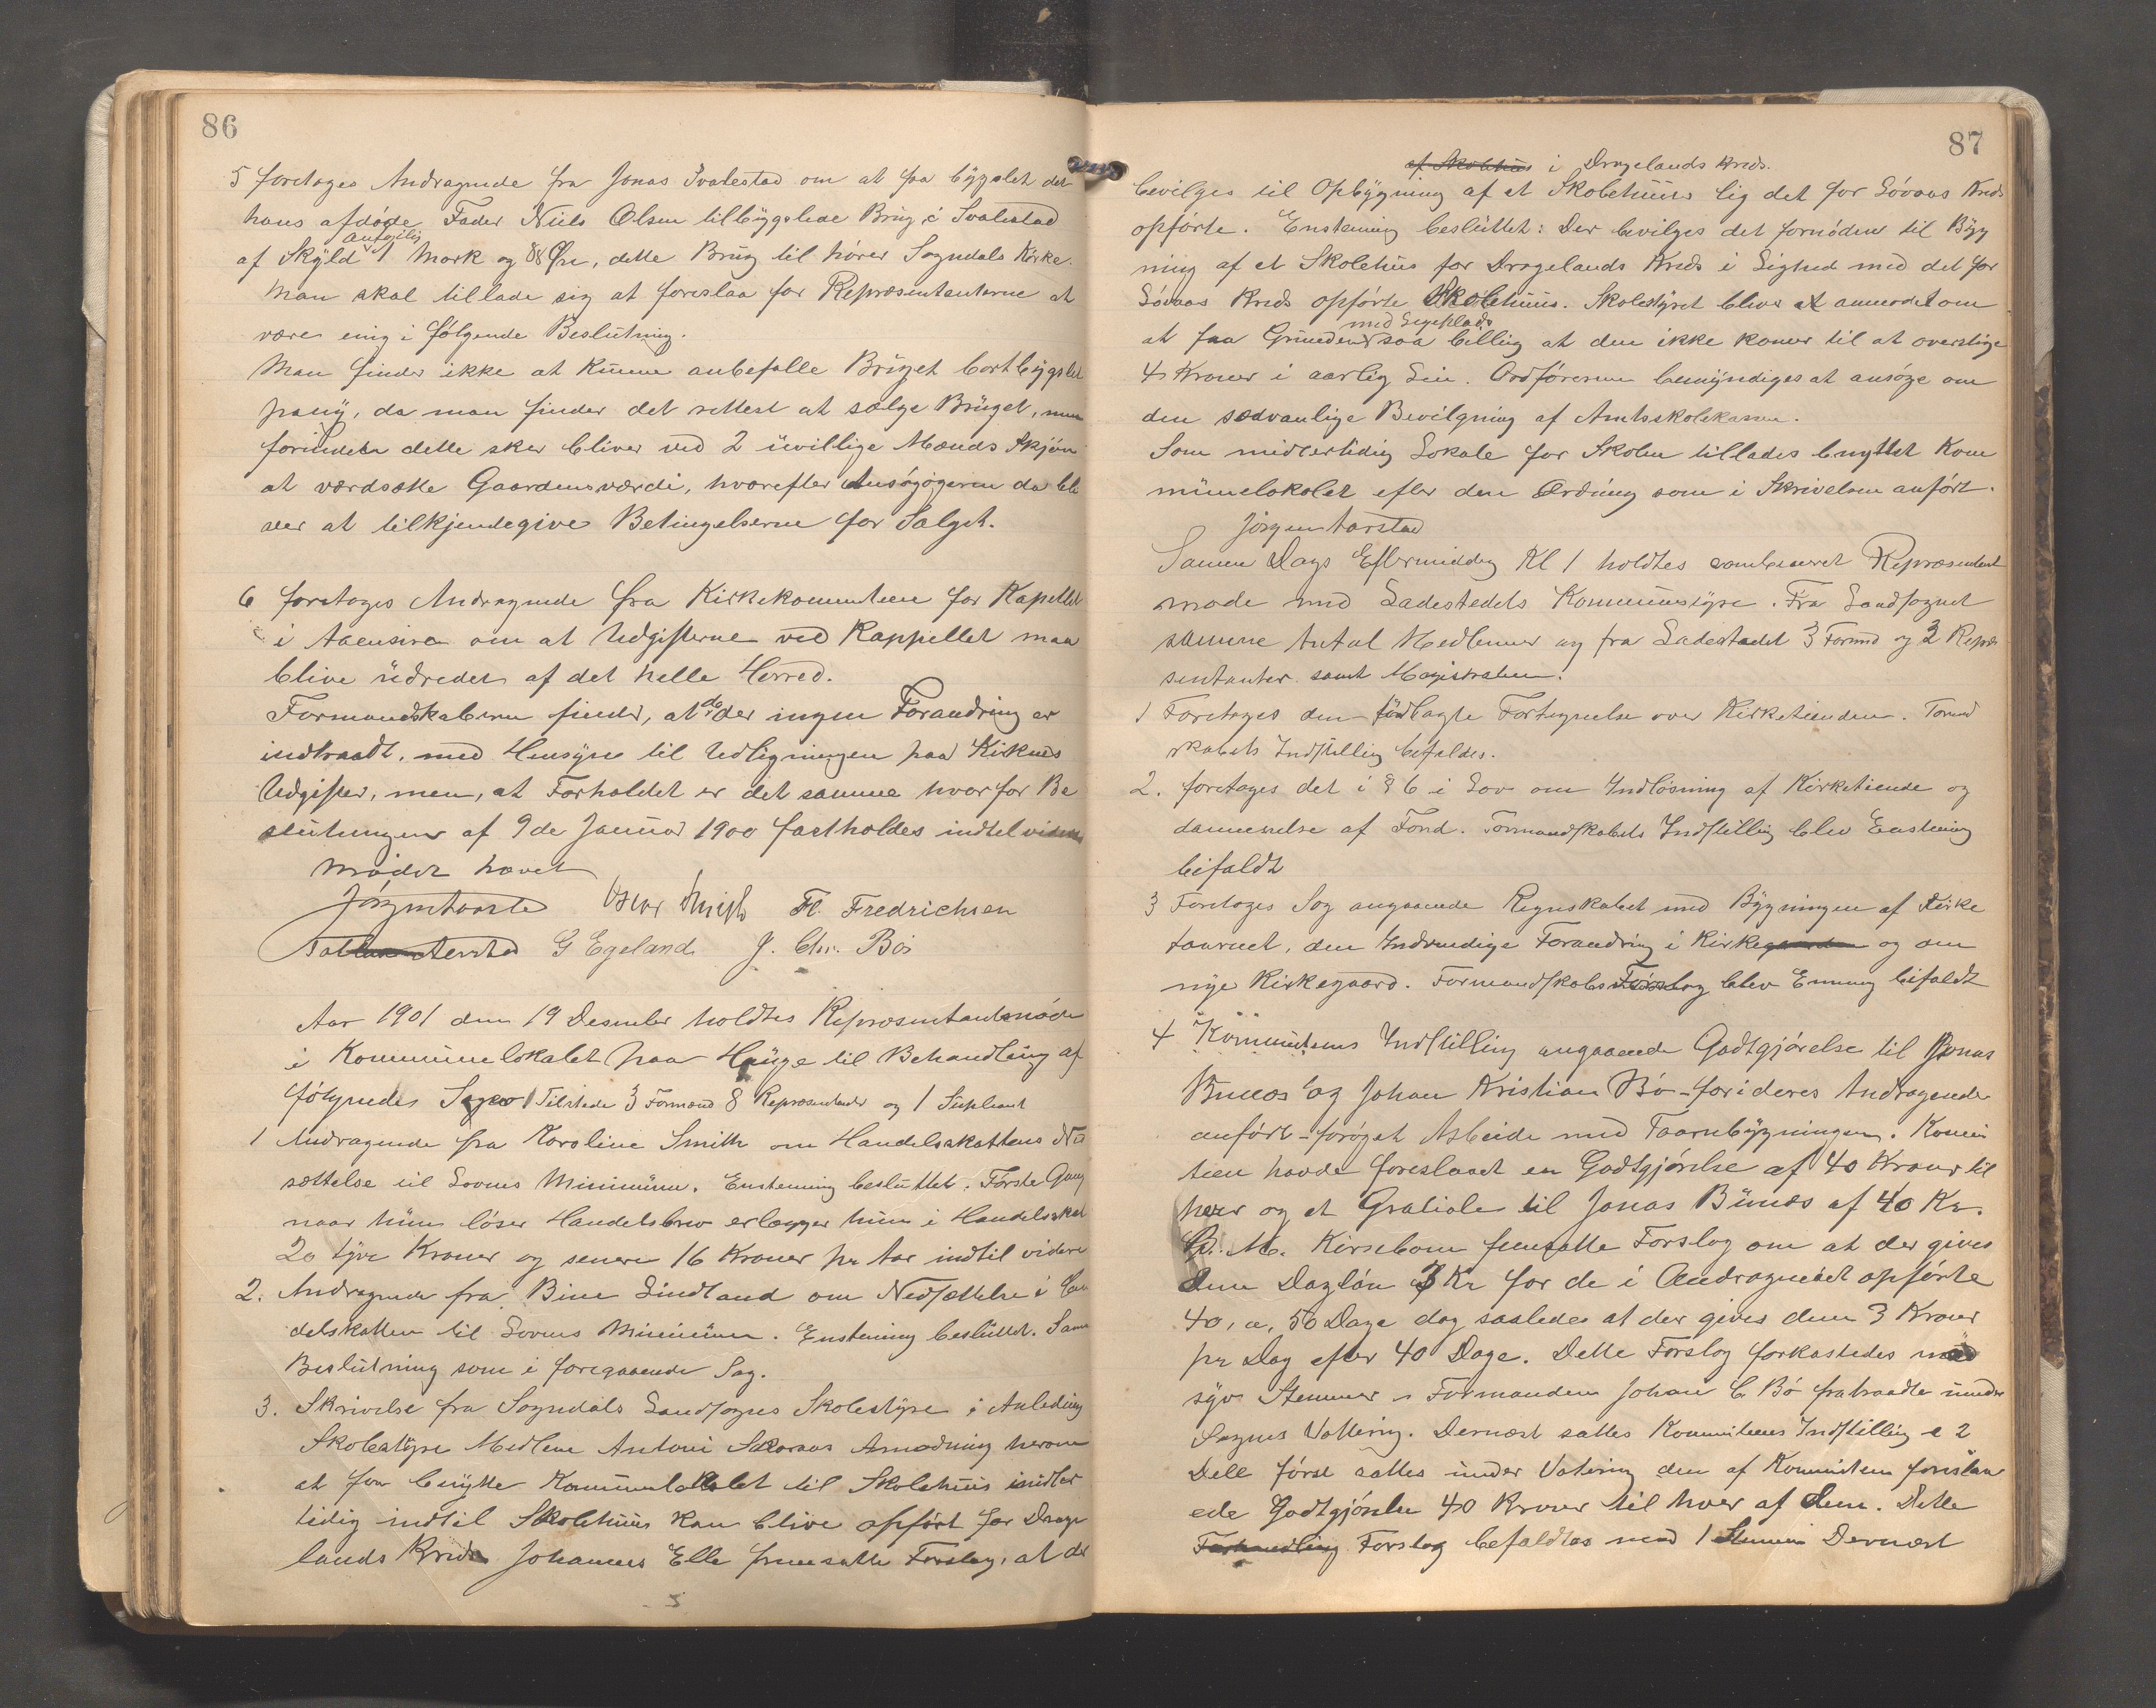 86
5 foretages Andragende fra Jonas Svalestad om at faa bygslet det
hans afdøde Fader Niels Olsen tilbygslede Brug i Svalestad
antagelig
af Skyld 1 Mark og 88 Øre, dette Brug til hører Sogndals Kirke.
Man skal tillade sig at foreslaa for Repræsentanterne at
være enig i følgende Beslutning.
Man finder ikke at kunne anbefalle Bruget bortbygslet
paany, da man finder det rettest at sælge Bruget, men
forinden dette sker bliver ved 2 uvillige Mænds Skjøn
at værdsætte Gaardens værdi, hvorefter Ansøgøgeren da ble
ver at tilkjendegive Betingelserne for Salget.
6 foretages Andragende fra Kirkekommiteen for Kapellet
i Aaensire om at Udgifterne ved Kappellet maa
blive udredet af det helle Herred.
Formandskaberne finder, at der ingen Forandring er
indtraadt, med Hensyn til Udligningen paa Kirkens
Udgifter, men, at Forholdet er det samme hvorfor Be
slutningen af 9de Januar 1900 fastholdes indtil videre
Mødet hævet
Jørgen Aarstad Oscar Smith Fr. Fredrichsen
G Egeland J. Chr. Bø
Aar 1901 den 19 Desember holdtes Repræsentantmøde
i Kommunelokalet paa Hauge til Behandling af
følgendes Sager Tilstede 3 Formænd 8 Repræsentanter og 1 Supleant
1 Andragende fra Karoline Smith om Handelsskattens Ned
sættelse til Lovens Minimum. Enstemmig besluttet. Første Gang
naar hun løser Handelsbrev erlægger hun i Handelsskat
20 tyve Kroner og senere 16 Kroner pr Aar indtil videre
2. Andragende fra Bine Lindland om Nedsættelse i Han
delskatten til Lovens Minimum. Enstemmig besluttet. Samme
Beslutning som i foregaaende Sag.
3. Skrivelse fra Sogndals Landsogns Skolestyre i Anledning
Skolestyre Medlem Antoni Anmodning herom
at faa benytte Kommunelokalet til Skolehuus midler
tidig indtil Skolehuus kan blive opført for Drage
lands Kreds Johannes Elle fremsatte Forslag, at der
87
af Skolehuus i Dragelands Kreds.
bevilges til Opbygning af et Skolehuus lig det for Løvaas Kreds
opførte. Enstemmig besluttet: Der bevilges det fornødne til Byg
ning af et Skolehus for Dragelands Kreds i Lighed med det for
Løvaas Kreds opførte Skolehuus. Skolestyret bliver at anmodet om
med Legeplads
at faa Grunden saa billig at den ikke komer til at overstige
4 Kroner i aarlig Leie. Ordføreren bemyndiges at ansøge om
den sædvanlige Bevilgning af Amtsskolekassen.
Som midlertidig Lokale for Skolen tillades benyttet Kom
munelokalet efter den Ordning som i Skrivelsen anført.
Jørgen Aarstad
Samme Dags Eftermiddag Kl 1 holdtes kombineret Repræsentant
møde med Ladestedets Kommunestyre. Fra Landsognet
samme Antal Medlemmer og fra Ladestedet 3 Formd og 3 Repræ
sentanter samt Magistraten.
1 Foretages den fredlagte Fortegnelse over Kirketienden. Formand
skabets Indstilling befaldes.
2. foretages det i § 6 i Lov om Indløsning af Kirketiende og
dannenelse af Fond. Formandskabets Indstilling blev Enstemmig
bifaldt
3 Foretages Sag angaaende Regnskabet med Bygningen af Kirke
taarnet, den Indvendige Forandring i Kirkegaarden og om
nye Kirkegaard. Formandskabs Forslag blev Enning bifaldt
4 Kommiteens Indstilling angaaende Godtgjørelse til Jonas
Bunæs og Johan Kristian Bø - for i deres Andragende
anført - forøget Arbeide med Taarnbygningen. Komi
teen havde foreslaaet en Godtgjørelse af 40 Kroner til
hver og et Gratiale til Jonas Bunæs af 40 Kr.
B. M. Kirsebom fremsatte Forslag om at der gives
dem Dagløn 3 Kr for de i Andragendet opførte
40, a, 56 Dage dog saaledes at der gives dem 3 Kroner
pr Dag efter 40 Dage. Dette Forslag forkastedes med
syv Stemmer Formanden Johan C Bø fratraadte under
Sagens Vottering. Dernæst sattes Kommiteens Indstilling e 2
Dele først sattes under Votering den af Kommiteen foreslaa
ede Godtgjørelse 40 Kroner til hver af dem. Dette
Forhandling Forslag befaldtes med 1 Stemme Dernæst